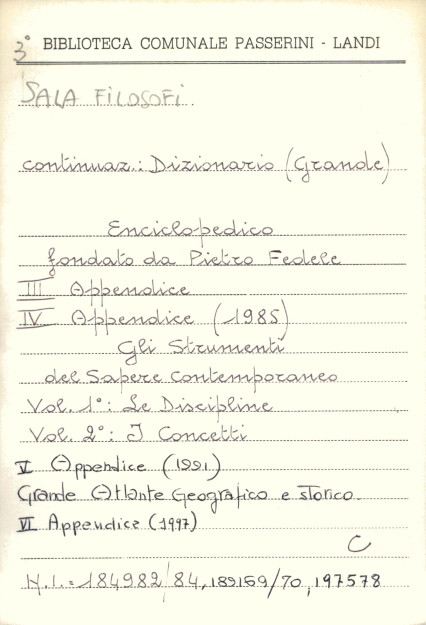 3° BIBLIOTECA COMUNALE PASSERINI - LANDI
SALA FILOSOFI.
continuaz.: Dizionario (Grande)
Enciclopedico
fondato da Pietro Fedele
III Appendice
IV Appendice (1985)
Gli Strumenti
del Sapere Contemporaneo
Vol. 1°: Le Discipline
Vol. 2°: I Concetti
V Appendice (1991)
Grande Atlante Geografico e storico.
VI Appendice (1997)
C
N.I.= 184982/84, 189169/70, 197578